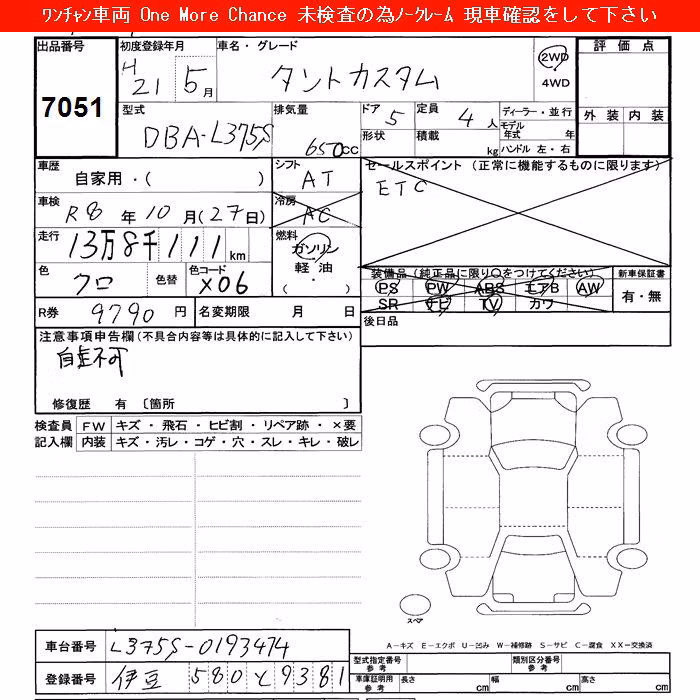 ﾜﾝﾁｬﾝ車両 One More Chance 未検査の為ﾉｰｸﾚｰﾑ 現車確認をして下さい
出品番号 初度登録年月 車名・グレード 評価点
7051 H 21 5月 タントカスタム 2WD
4WD
型式 排気量 ドア 定員 ディーラー・並行 外装 内装
DBA-L375S 650cc 5 4人 モデル年式 年
形状 積載 kg ハンドル 左・右
車歴 シフト セールスポイント (正常に機能するものに限ります)
自家用・( ) AT ETC
車検 冷房
R8年10月(27日) AC
走行 燃料
13万8千111km ガソリン
軽油
・
( )
色 色替 色コード 装備品 (純正品に限り○をつけてください) 新車保証書
クロ X06 PS PW ABS エアB AW 有・無
SR ナビ TV カワ
R券 9790円 名変期限 月 日 後日品
注意事項申告欄 (不具合内容等は具体的に記入して下さい)
自走不可
修復歴 有 〔箇所 〕
検査員 FW キズ・飛石・ヒビ割・リペア跡・×要
記入欄 内装 キズ・汚レ・コゲ・穴・スレ・キレ・破レ
スペア
A-キズ E-エクボ U-凹み W-補修跡 S-サビ C-腐食 XX-交換済
車台番号 L375S-0193474 型式指定番号 参考 類別区分番号 参考
登録番号 伊豆 580 と 9381 車庫証明用 参考 長さ cm 幅 cm 高さ cm